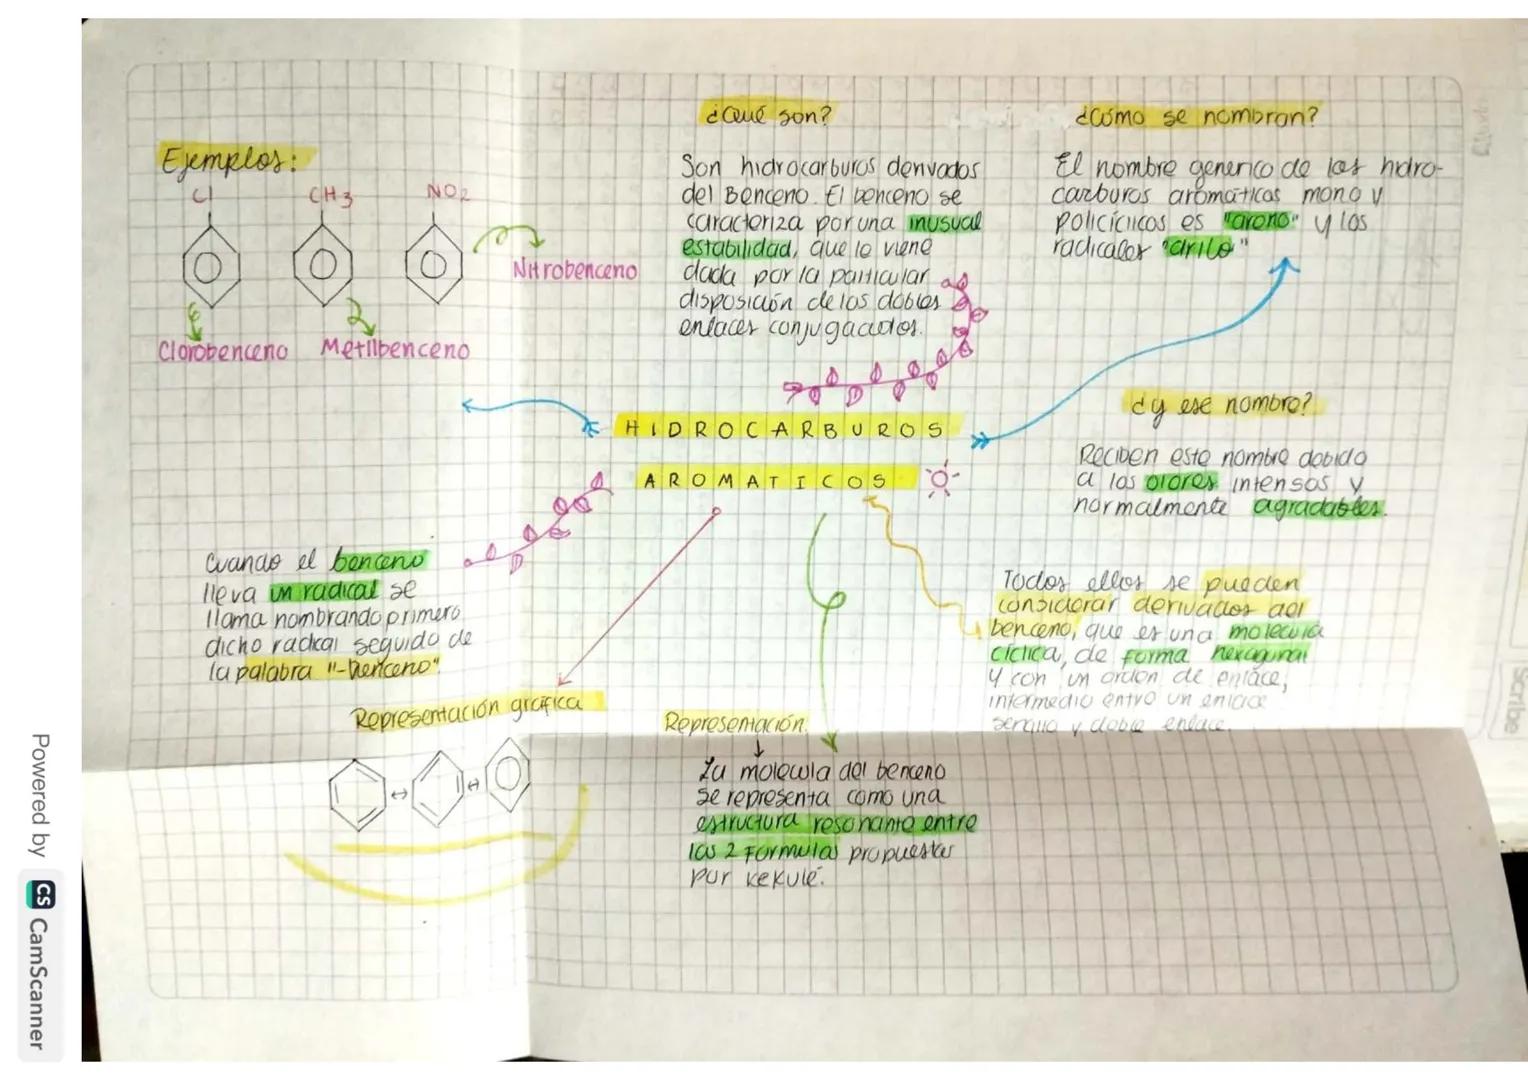 Ejemplos:
Cl
CH3
NO2
Nitrobenceno
Clorobenceno
Metilbenceno
¿Qué son?
Son hidrocarburos derivados
del Benceno. El benceno se
caracteriza por una inusual
estabilidad, que le viene
dada por la particular
disposición de los dobles
enlaces conjugacados.
¿Cómo se nombran?
El nombre generico de los hidro-
carburos aromáticos mono y
policíclicos es "areno" y los
radicales "arilo"
HIDROCARBUROS
AROMATICOS
¿y ese nombre?
Reciben este nombre debido
a los olores intensos y
normalmente agradables.
Cuando el benceno
lleva un radical se
llama nombrando primero
dicho radical seguido de
la palabra "-benceno".
Todos ellos se pueden
considerar derivados del
benceno, que es una molecula
cíclica, de forma hexagonal
y con un orden de enlace,
intermedio entre un enlace
sencillo y doble enlace.
Representación gráfica
Representación.
La molecula del benceno
se representa como una
estructura resonante entre
las 2 formulas propuestas
por Kekulé.
Scribe
Powered by CS CamScanner